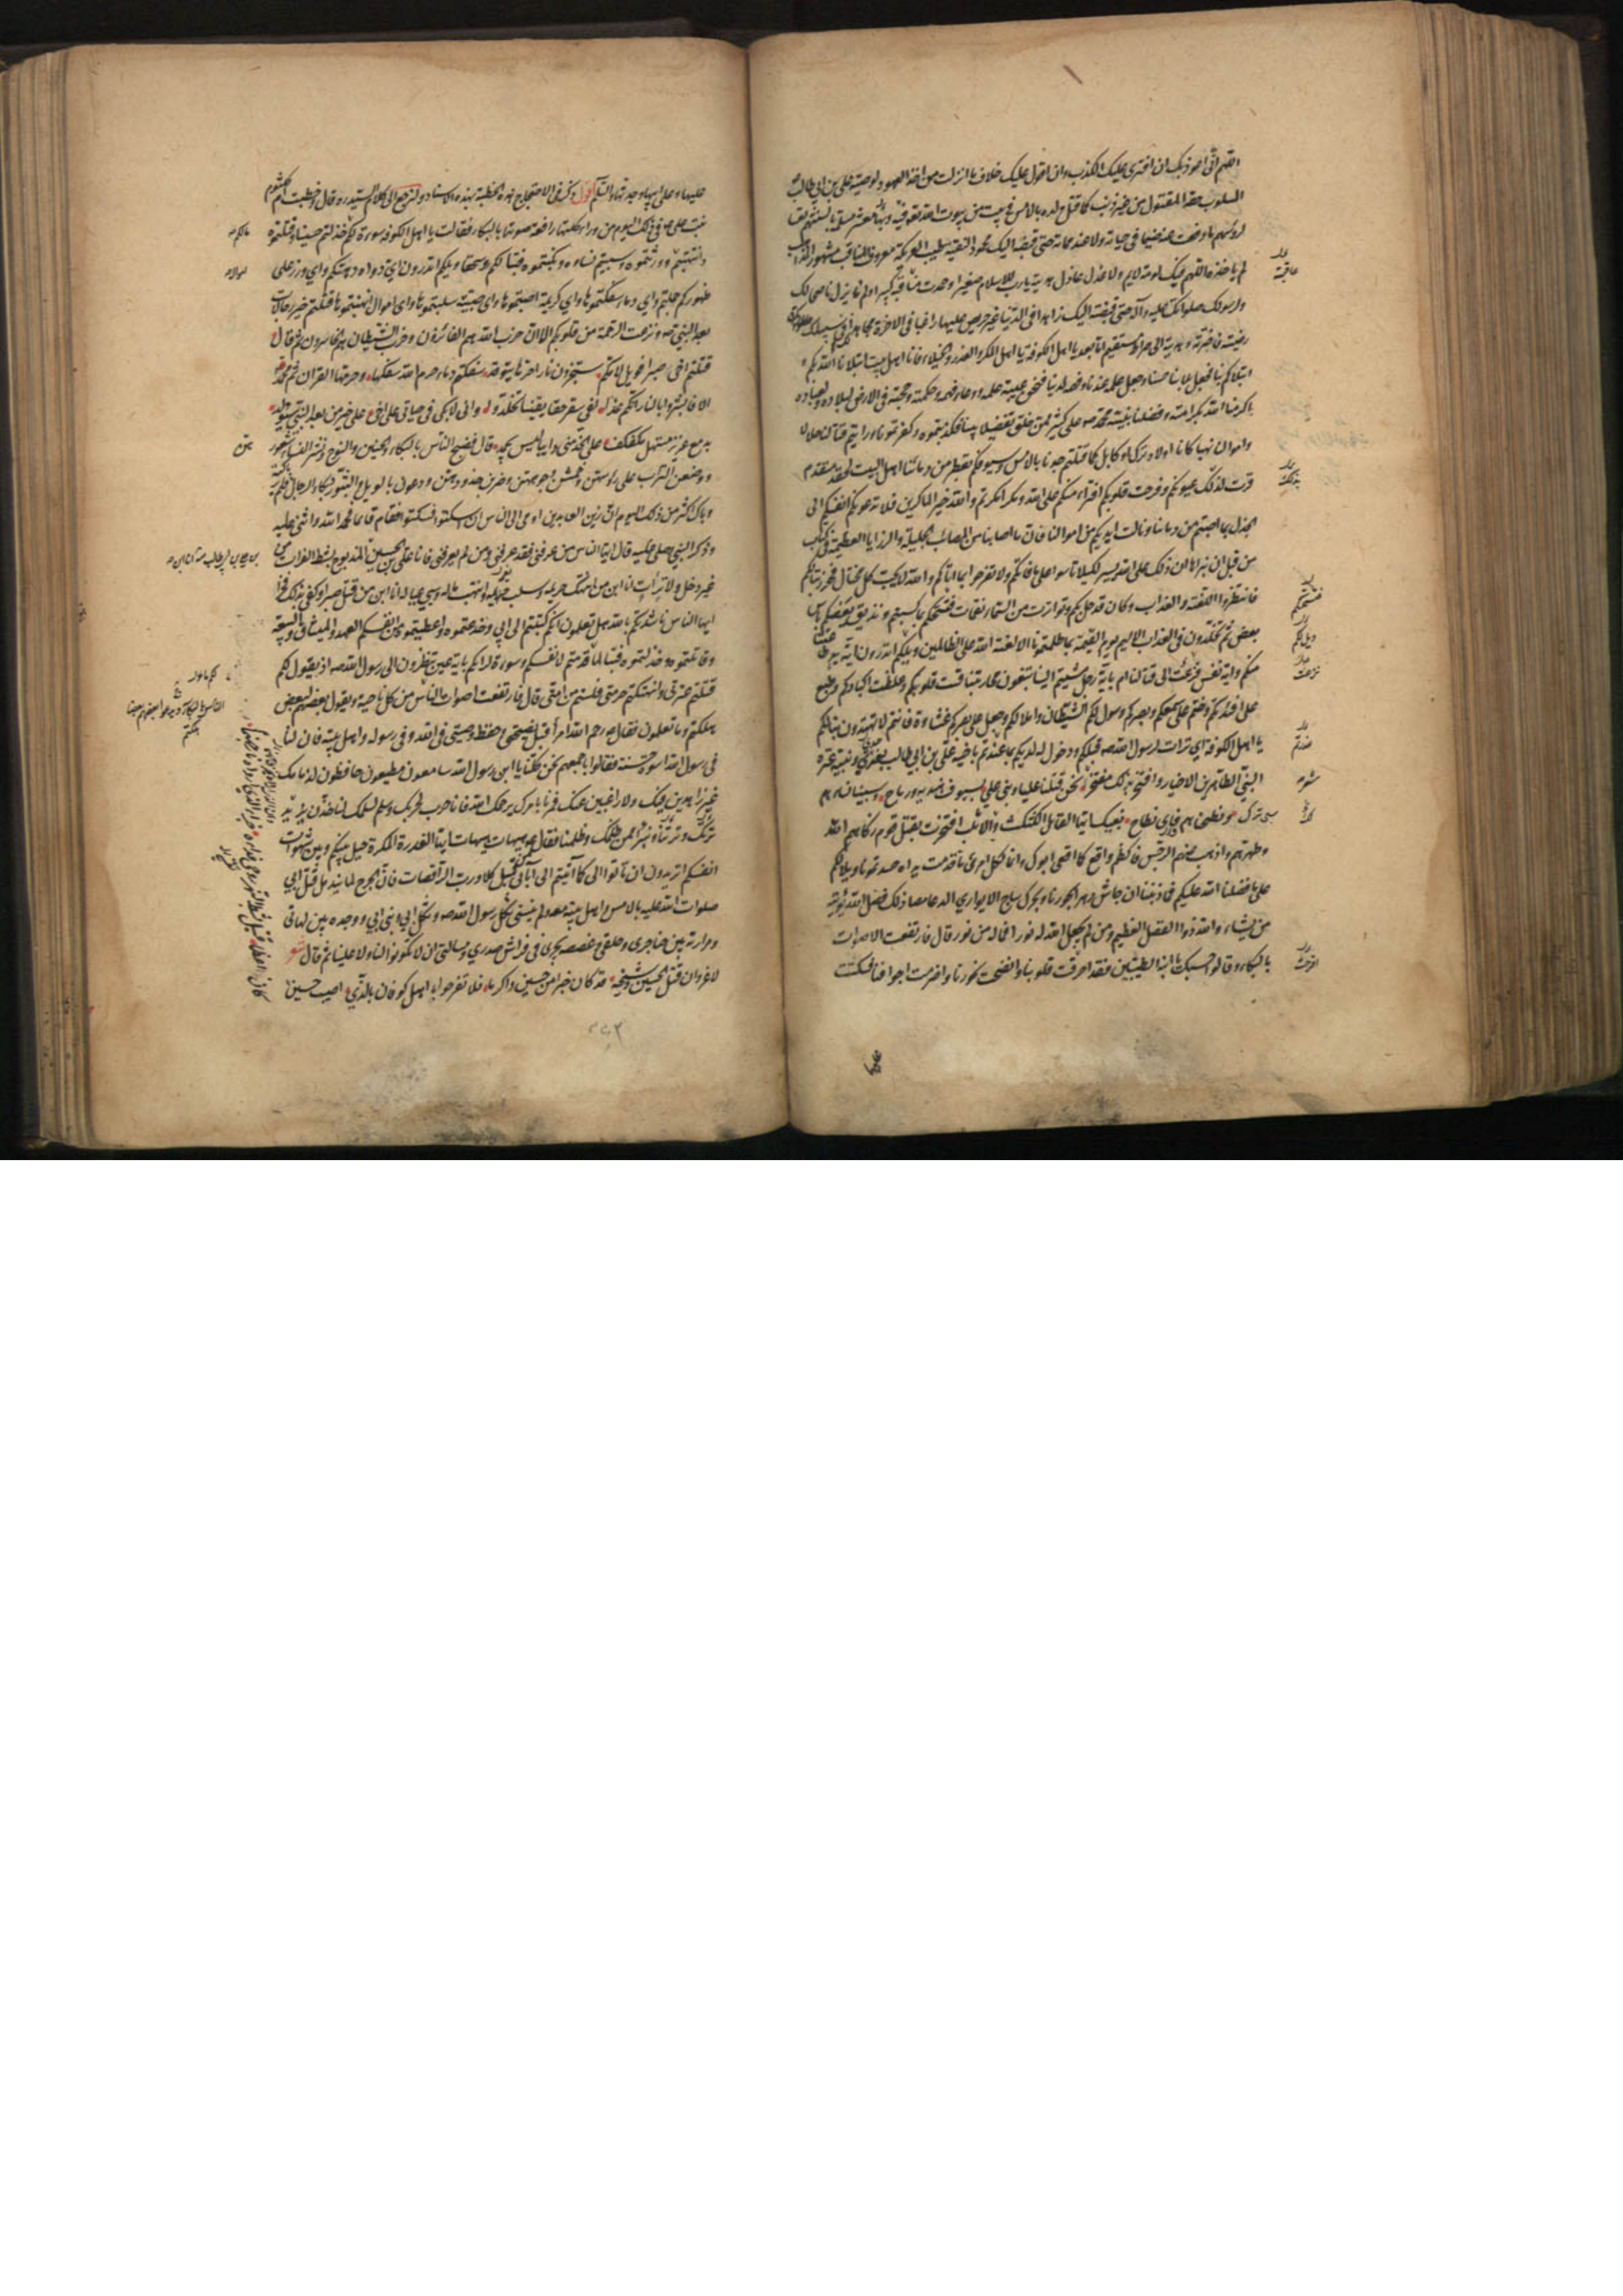 اللهم اني اعوذ بك ان افتري عليك الكذب وان اقول عليك خلاف ما انزلت من اخذ العهود لوصيه علي بن ابي طالب
المسلوب حقه المقتول من غير ذنب كما قتل ولده بالامس في بيت من بيوت الله تعالى فيه وبها معشر مسلمة بالسنتهم تعسا
لرؤسهم ما دفعت عنه ضيما في حياته ولا عند مماته حتى قبضته اليك محمود النقيبة طيب العريكة معروف المناقب مشهور المذاهب
لم ياخذه اللهم فيك لومة لايم ولا عذل عاذل هديته يا رب للاسلام صغيرا وحمدت مناقبه كبيرا ولم يزل ناصحا لك
ولرسولك صلواتك عليه وآله حتى قبضته اليك زاهدا في الدنيا غير حريص عليها راغبا في الاخرة مجاهدا لك في سبيلك
رضيته فاخترته وهديته الى صراط مستقيم اما بعد يا اهل الكوفة يا اهل المكر والغدر والخيلاء فانا اهل بيت ابتلانا الله بكم و
ابتلاكم بنا فجعل بلانا حسنا وجعل علمه عندنا وفهمه لدينا فنحن عيبة علمه ووعاء فهمه وحكمته وحجته في الارض لبلاده ولعباده
اكرمنا الله بكرامته وفضلنا بنبيه محمد ص على كثير ممن خلق تفضيلا بينا فكذبتمونا وكفرتمونا ورايتم قتالنا حلالا
واموالنا نهبا كانا اولاد ترك او كابل كما قتلتم جدنا بالامس وسيوفكم تقطر من دمائنا اهل البيت لحقد متقدم
قرت لذلك عيونكم وفرحت قلوبكم افتراء منكم على الله ومكرا مكرتم والله خير الماكرين فلا تدعونكم انفسكم الى
الجذل بما اصبتم من دمائنا ونالت ايديكم من اموالنا فان ما اصابنا من المصائب الجليلة والرزايا العظيمة في كتاب
من قبل ان نبراها ان ذلك على الله يسير لكيلا تاسوا على ما فاتكم ولا تفرحوا بما اتاكم والله لا يحب كل مختال فخور تبا لكم
فانتظروا اللعنة والعذاب وكان قد حل بكم وتواترت من السماء نقمات فتسحتكم بما كسبتم ويذيق بعضكم باس
بعض ثم تخلدون في العذاب الاليم يوم القيمة بما ظلمتمونا الا لعنة الله على الظالمين ويلكم اتدرون اية يد طاعنتنا
منكم واية نفس نزعت الى قتالنا ام باية رجل مشيتم الينا تبغون محاربتنا قست قلوبكم وغلظت اكبادكم وطبع
على افئدتكم وختم على سمعكم وبصركم وسول لكم الشيطان واملا لكم وجعل على بصركم غشاوة فانتم لا تهتدون تبا لكم
يا اهل الكوفة اي ترات لرسول الله ص قبلكم وذحول له لديكم بما عندتم باخيه علي بن ابي طالب جدي وبنيه عترة
النبي الطاهرين الاخيار وافتخر بذلك مفتخر نحن قتلنا عليا وبني علي بسيوف هندية ورماح وسبينا نساءهم
سبي ترك ونطحناهم فاي نطاح بفيك ايها القائل الكثكث والاثلب افتخرت بقتل قوم زكاهم الله
وطهرهم واذهب عنهم الرجس فاكظم واقع كما اقعى ابوك وانما لكل امرئ ما قدمت يداه حسدتمونا ويلا لكم
على ما فضلنا الله عليكم فما ذنبنا ان جاش دهرا بحورنا وبحرك ساج لا يواري الدعامصا ذلك فضل الله يؤتيه
من يشاء والله ذوا الفضل العظيم ومن لم يجعل الله له نورا فما له من نور قال فارتفعت الاصوات
بالبكاء وقالوا حسبك يا ابنة الطيبين فقد احرقت قلوبنا وانضحت نحورنا واضرمت اجوافنا فسكتت
عليها وعلى ابيها وجدتها السلام اقول وذكر في الاحتجاج هذه الخطبة بهذه الاسناد ولنرجع الى كلام السيد ره قال وخطبت ام كلثوم
بنت علي ع في ذلك اليوم من وراء كلتها رافعة صوتها بالبكاء فقالت يا اهل الكوفة سوءة لكم خذلتم حسينا وقتلتموه
وانتهبتم وورثتموه وسبيتم نساءه ونكبتموه فتبا لكم وسحقا ويلكم اتدرون اي دواه دهتكم واي وزر على
ظهوركم حملتم واي دماء سفكتموها واي كريمة اصبتموها واي صبية سلبتموها واي اموال نهبتموها قتلتم خير رجالات
بعد النبي ص ونزعت الرحمة من قلوبكم الا ان حزب الله هم الفائزون وحزب الشيطان هم الخاسرون ثم قال
قتلتم اخي صبرا فويل لامكم ستجزون نارا حرها يتوقد سفكتم دماء حرم الله سفكها وحرمها القران ثم محمد
الا فابشروا بالنار انكم غدا لفي سقر حقا يقينا تخلدوا واني لابكي في حياتي على اخي على خير من بعد النبي سيولد
بدمع غزير مستهل مكفكف على الخد مني دايبا ليس يجمد قال فضج الناس بالبكاء والحنين والنوح ونشر النساء شعورهن
ووضعن التراب على رؤسهن وخمشن وجوههن وضربن خدودهن ودعون بالويل والثبور وبكا الرجال فلم ير باكية
وباك اكثر من ذلك اليوم ثم ان زين العابدين اومى الى الناس ان اسكتوا فسكتوا فقام قائما فحمد الله واثنى عليه
وذكر النبي وصلى عليه ثم قال ايها الناس من عرفني فقد عرفني ومن لم يعرفني فانا علي بن الحسين المذبوح بشط الفرات من
غير دخل ولا ترات انا ابن من انتهك حريمه وسلب نعيمه وانتهب ماله وسبي عياله انا ابن من قتل صبرا وكفى بذلك فخرا
ايها الناس ناشدتكم بالله هل تعلمون انكم كتبتم الى ابي وخدعتموه واعطيتموه من انفسكم العهد والميثاق والبيعة
وقاتلتموه وخذلتموه فتبا لما قدمتم لانفسكم وسوءة لرايكم باية عين تنظرون الى رسول الله ص اذ يقول لكم
قتلتم عترتي وانتهكتم حرمتي فلستم من امتي قال فارتفعت اصوات الناس من كل ناحية ويقول بعضهم لبعض
هلكتم وما تعلمون فقال ع رحم الله امرأ قبل نصيحتي وحفظ وصيتي في الله وفي رسوله واهل بيته فان لنا
في رسول الله اسوة حسنة فقالوا باجمعهم نحن كلنا يا ابن رسول الله سامعون مطيعون حافظون لذمامك
غير زاهدين فيك ولا راغبين عنك فمرنا بامرك يرحمك الله فانا حرب لحربك وسلم لسلمك لناخذن يزيد
ونبرأ ممن ظلمك وظلمنا فقال ع هيهات هيهات ايها الغدرة المكرة حيل بينكم وبين شهوات
انفسكم اتريدون ان تاتوا الي كما اتيتم الى آبائي من قبل كلا ورب الراقصات فان الجرح لما يندمل قتل ابي
صلوات الله عليه بالامس واهل بيته معه ولم ينسني ثكل رسول الله ص وثكل ابي وبني ابي ووجده بين لهاتي
ومرارته بين حناجري وحلقي وغصصه يجري في فراش صدري ومسالتي ان لا تكونوا لنا ولا علينا ثم قال شعر
لا غرو ان قتل الحسين وشيخه قد كان خيرا من حسين واكرما فلا تفرحوا يا اهل كوفان بالذي اصيب حسين